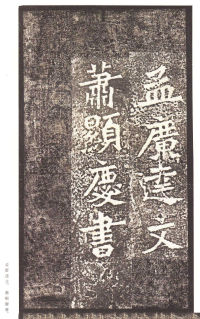 孟廣達文
蕭顯慶書